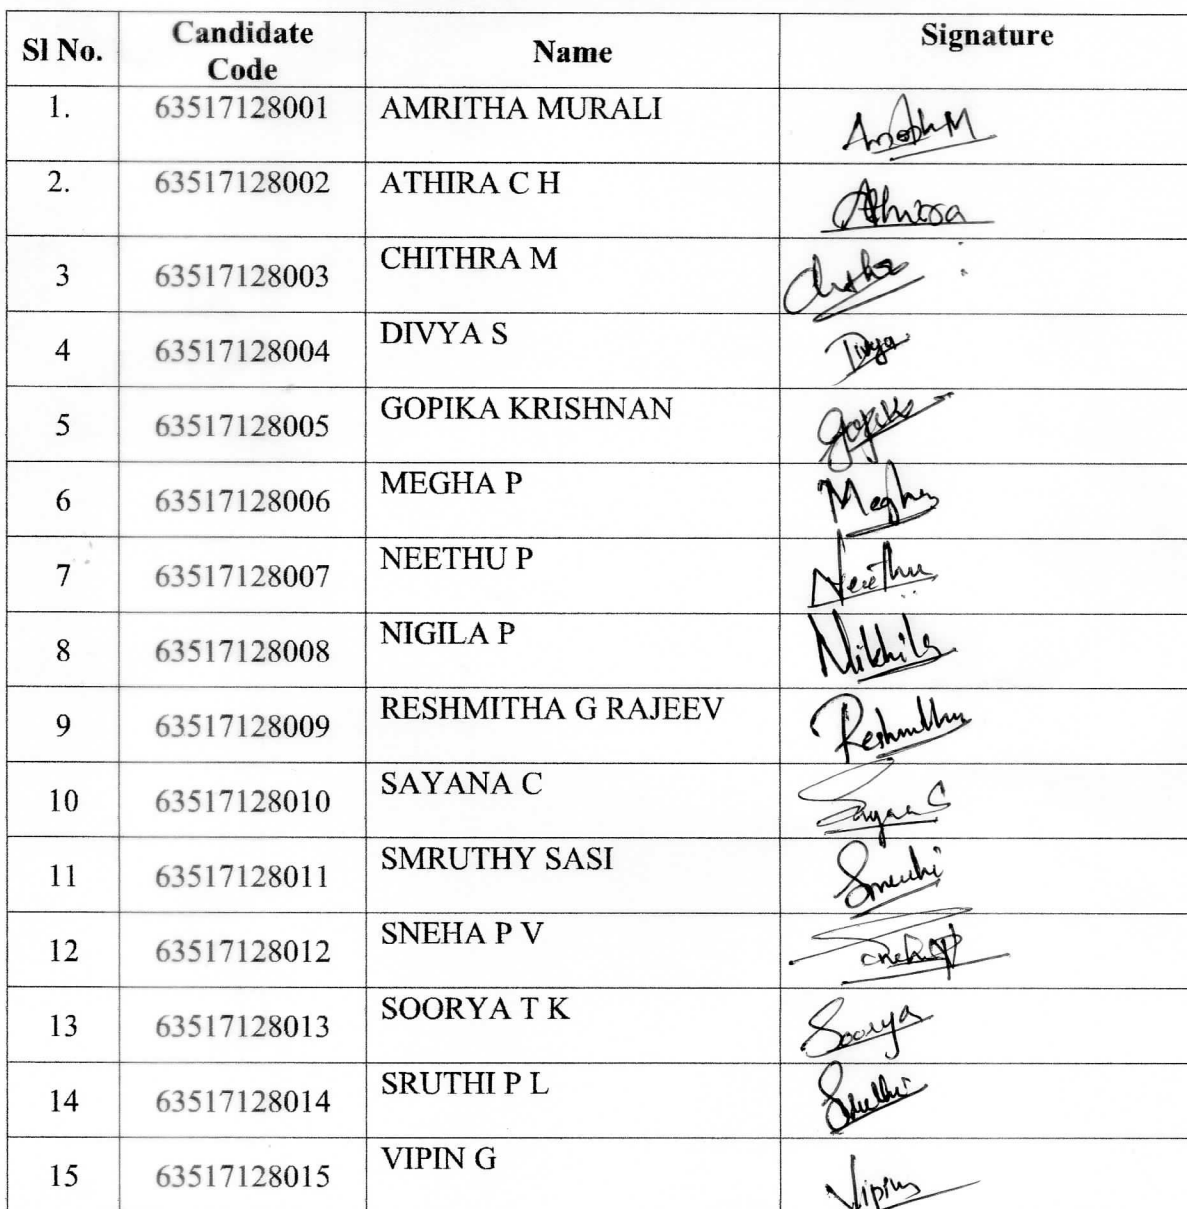 Sl No. Candidate Code Name Signature
1. 63517128001 AMRITHA MURALI
2. 63517128002 ATHIRA C H Athira
3 63517128003 CHITHRA M
4 63517128004 DIVYA S Divya
5 63517128005 GOPIKA KRISHNAN Gopika
6 63517128006 MEGHA P Megha
7 63517128007 NEETHU P Neethu
8 63517128008 NIGILA P Nikhila
9 63517128009 RESHMITHA G RAJEEV
10 63517128010 SAYANA C
11 63517128011 SMRUTHY SASI
12 63517128012 SNEHA P V
13 63517128013 SOORYA T K Soorya
14 63517128014 SRUTHI P L Sruthi
15 63517128015 VIPIN G